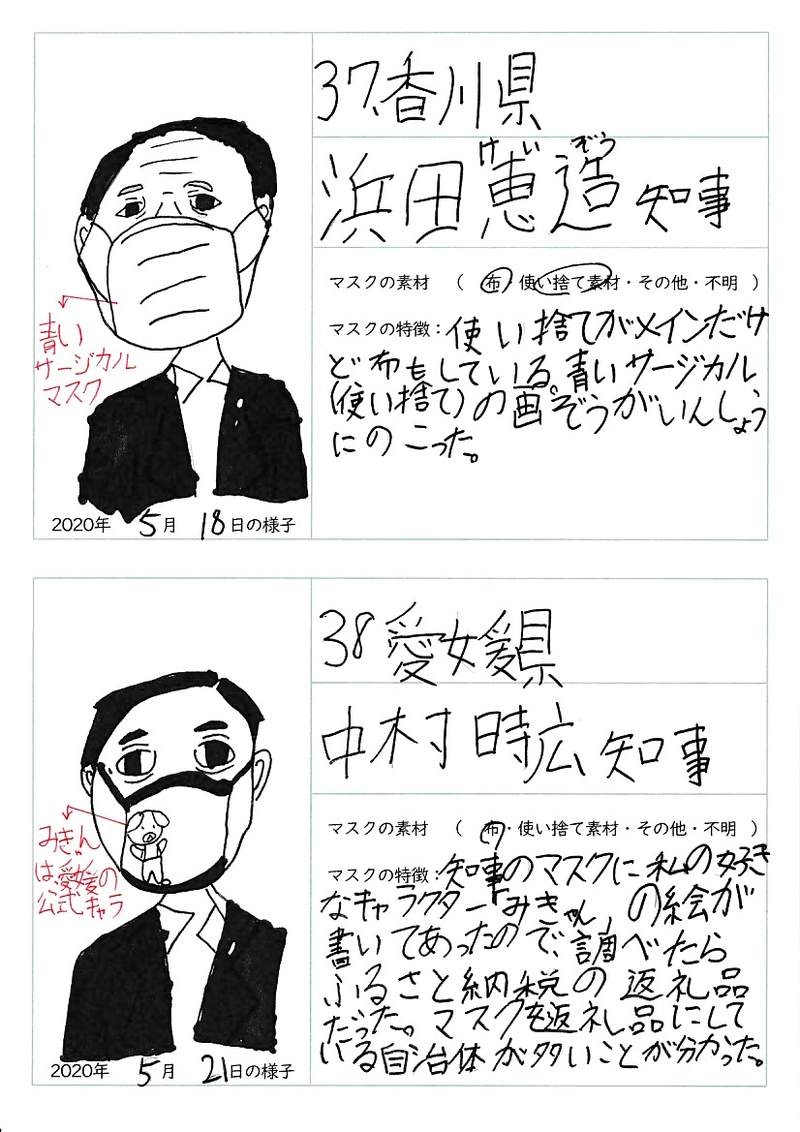 37.香川県
けいぞう
浜田恵造知事
マスクの素材 ( 布・使い捨て素材・その他・不明 )
マスクの特徴：使い捨てがメインだけ
ど布もしている。青いサージカル
(使い捨て)の画ぞうがいんしょう
にのこった。
青い
サージカル
マスク
2020年 5月 18日の様子
38愛媛県
中村時広知事
マスクの素材 ( 布・使い捨て素材・その他・不明 )
マスクの特徴：知事のマスクに私の好き
なキャラクター「みきゃん」の絵が
書いてあったので、調べたら
ふるさと納税の返礼品
だった。マスクを返礼品にして
いる自治体が多いことが分かった。
みきゃん
は、愛媛の
公式キャラ
2020年 5月 21日の様子